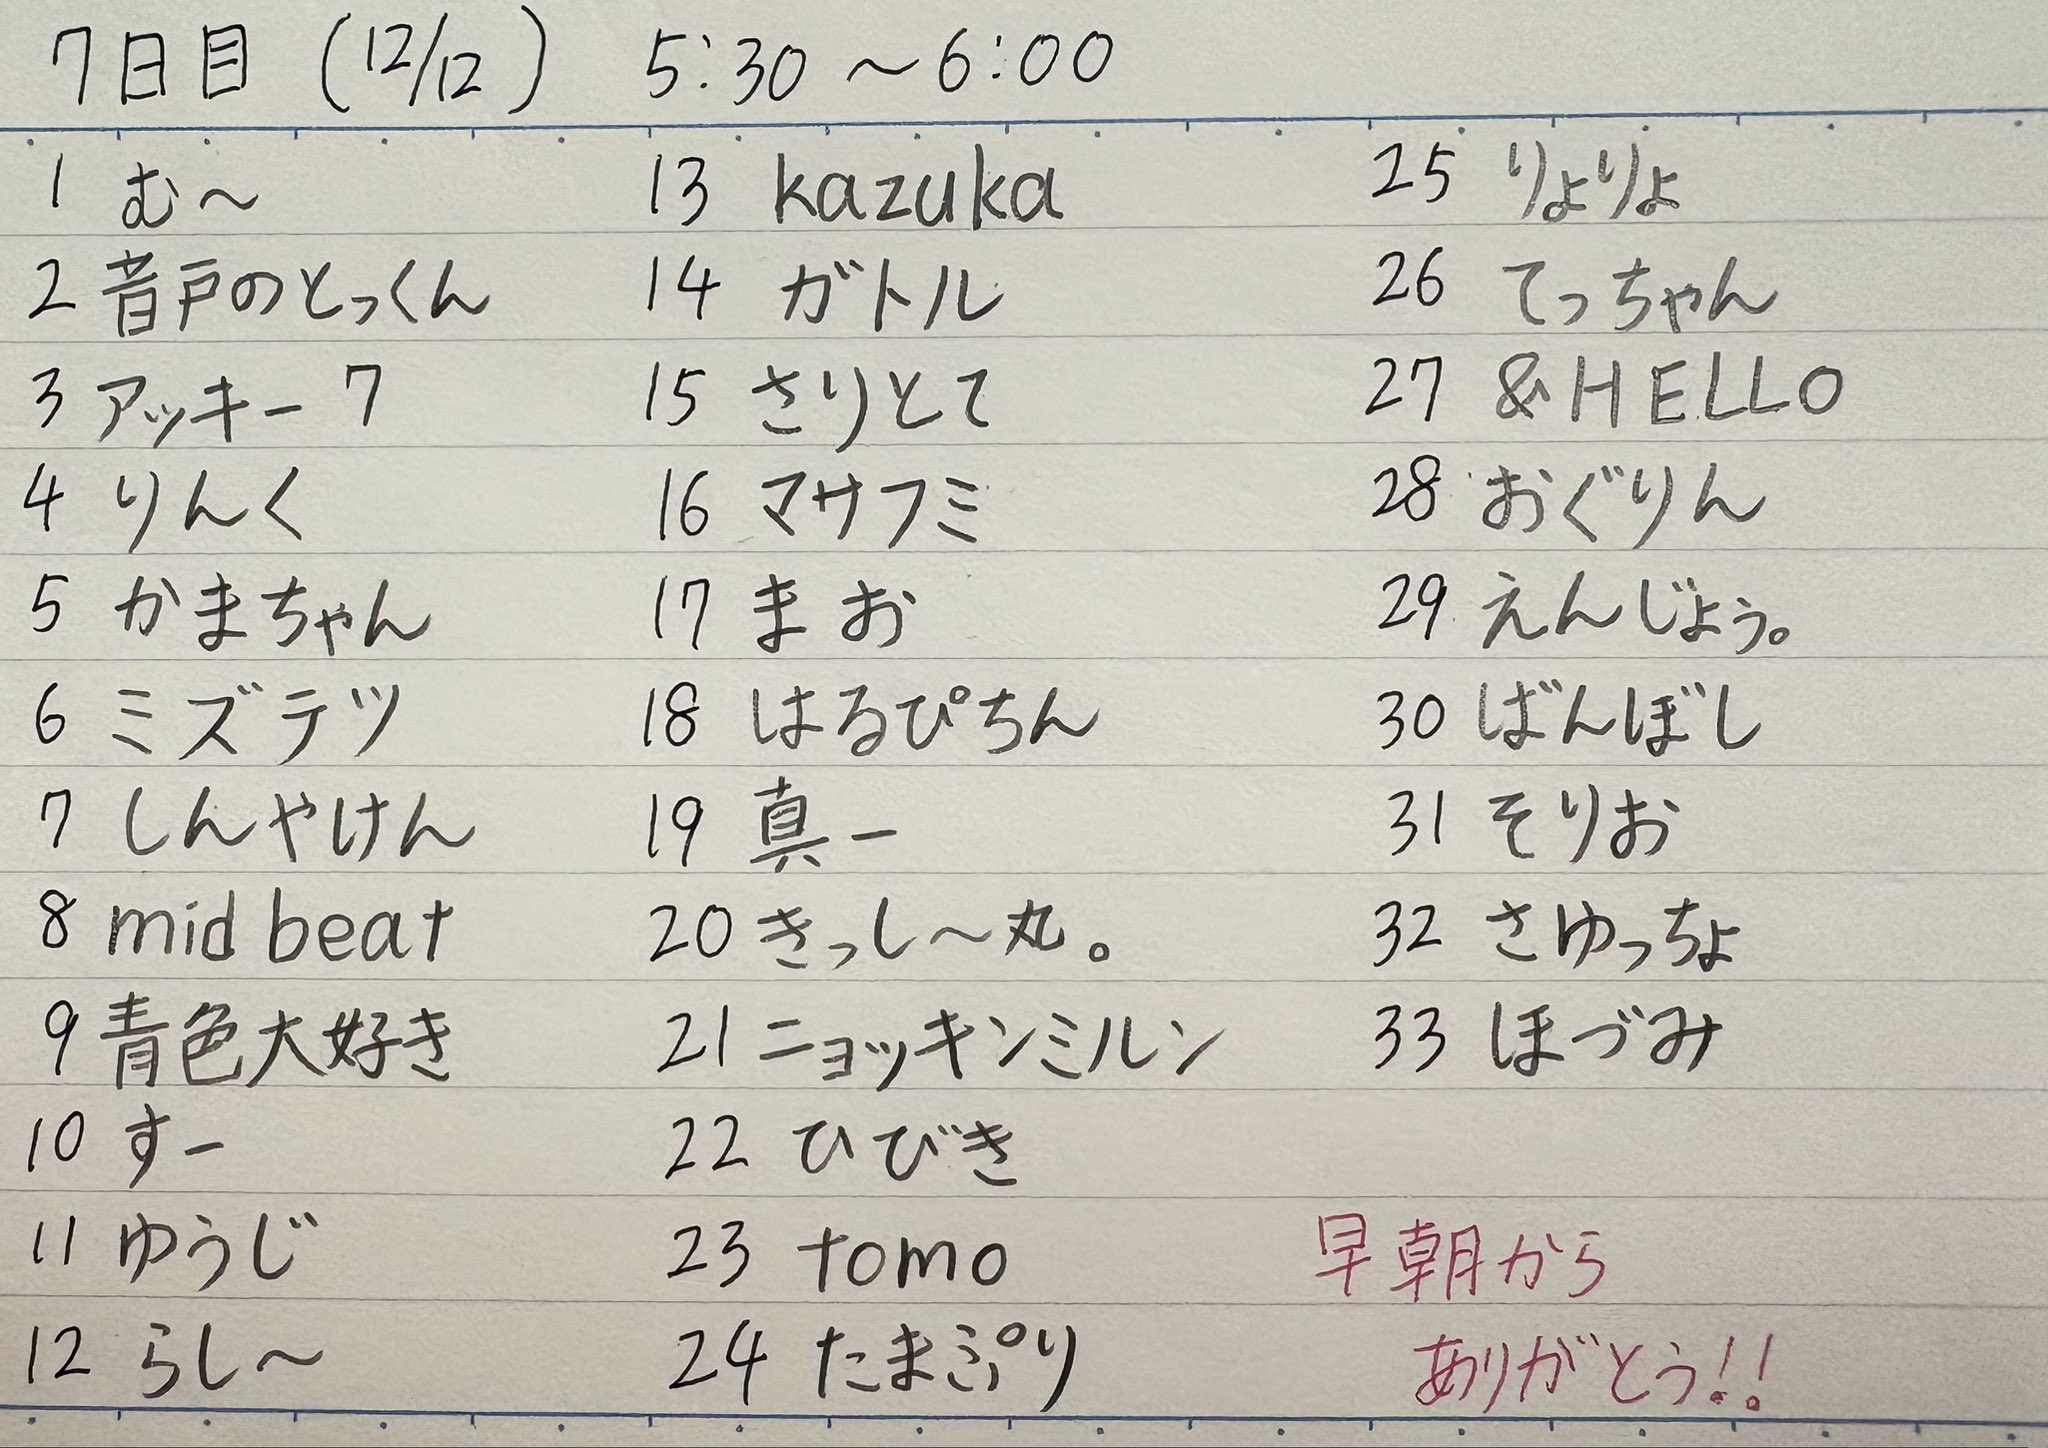 7日目 (12/12) 5:30～6:00
1 む～
2 音戸のとっくん
3 アッキー7
4 りんく
5 かまちゃん
6 ミズテツ
7 しんやけん
8 mid beat
9 青色大好き
10 すー
11 ゆうじ
12 らし～
13 kazuka
14 ガトル
15 さりとて
16 マサフミ
17 まお
18 はるぴちん
19 真一
20 きっし～丸。
21 ニョッキンミルン
22 ひびき
23 tomo
24 たまぷり
25 りょりょ
26 てっちゃん
27 &HELLO
28 おぐりん
29 えんじょう。
30 ばんぼし
31 そりお
32 さゆっちょ
33 ほづみ
早朝から
ありがとう!!